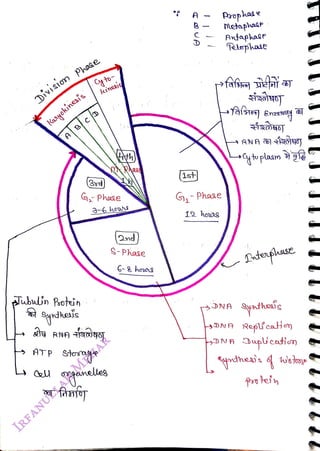 ∵ A – Prophase
B – Metaphase
C – Anaphase
D – Telophase
Division Phase
Karyokinesis
Cyto-
kinesis
A B C D
4th
M-Phase
1 hr
1st
G₁-Phase
12 hours
3rd
G₂-Phase
3-6 hours
2nd
S-Phase
6-8 hours
→ विभिन्न प्रोटीनों का
संश्लेषण
→ विभिन्न Enzymes का
संश्लेषण
→ RNA का संश्लेषण
→ Cytoplasm में वृद्धि
Interphase
Tubulin Protein
की Synthesis
→ शेष RNA संश्लेषण
→ ATP Storage
→ Cell organelles
का निर्माण
→ DNA Synthesis
→ DNA Replication
→ DNA Duplication
Synthesis of histone
protein